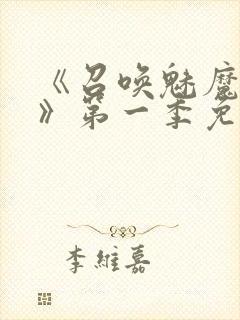 《召唤魅魔
》第一季免
李維嘉